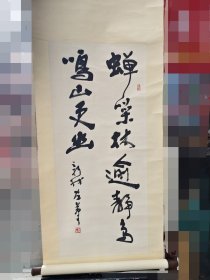 蝉噪林逾静鸟
鸣山更幽